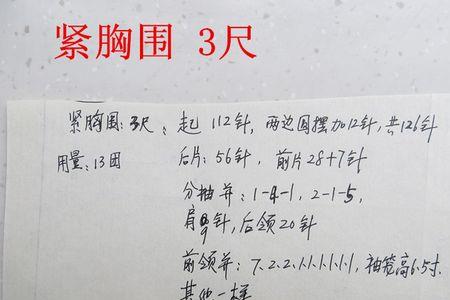 紧胸围 3尺
紧胸围:3尺, 起112针, 两边圆摆加12针, 共126针
用量:13团 后片:56针, 前片28+7针
分袖并:1-4-1, 2-1-5,
肩9针, 后领20针
前领并:7.2.2.1.1.1.1.1.1, 袖笼高6.5寸
其他一样